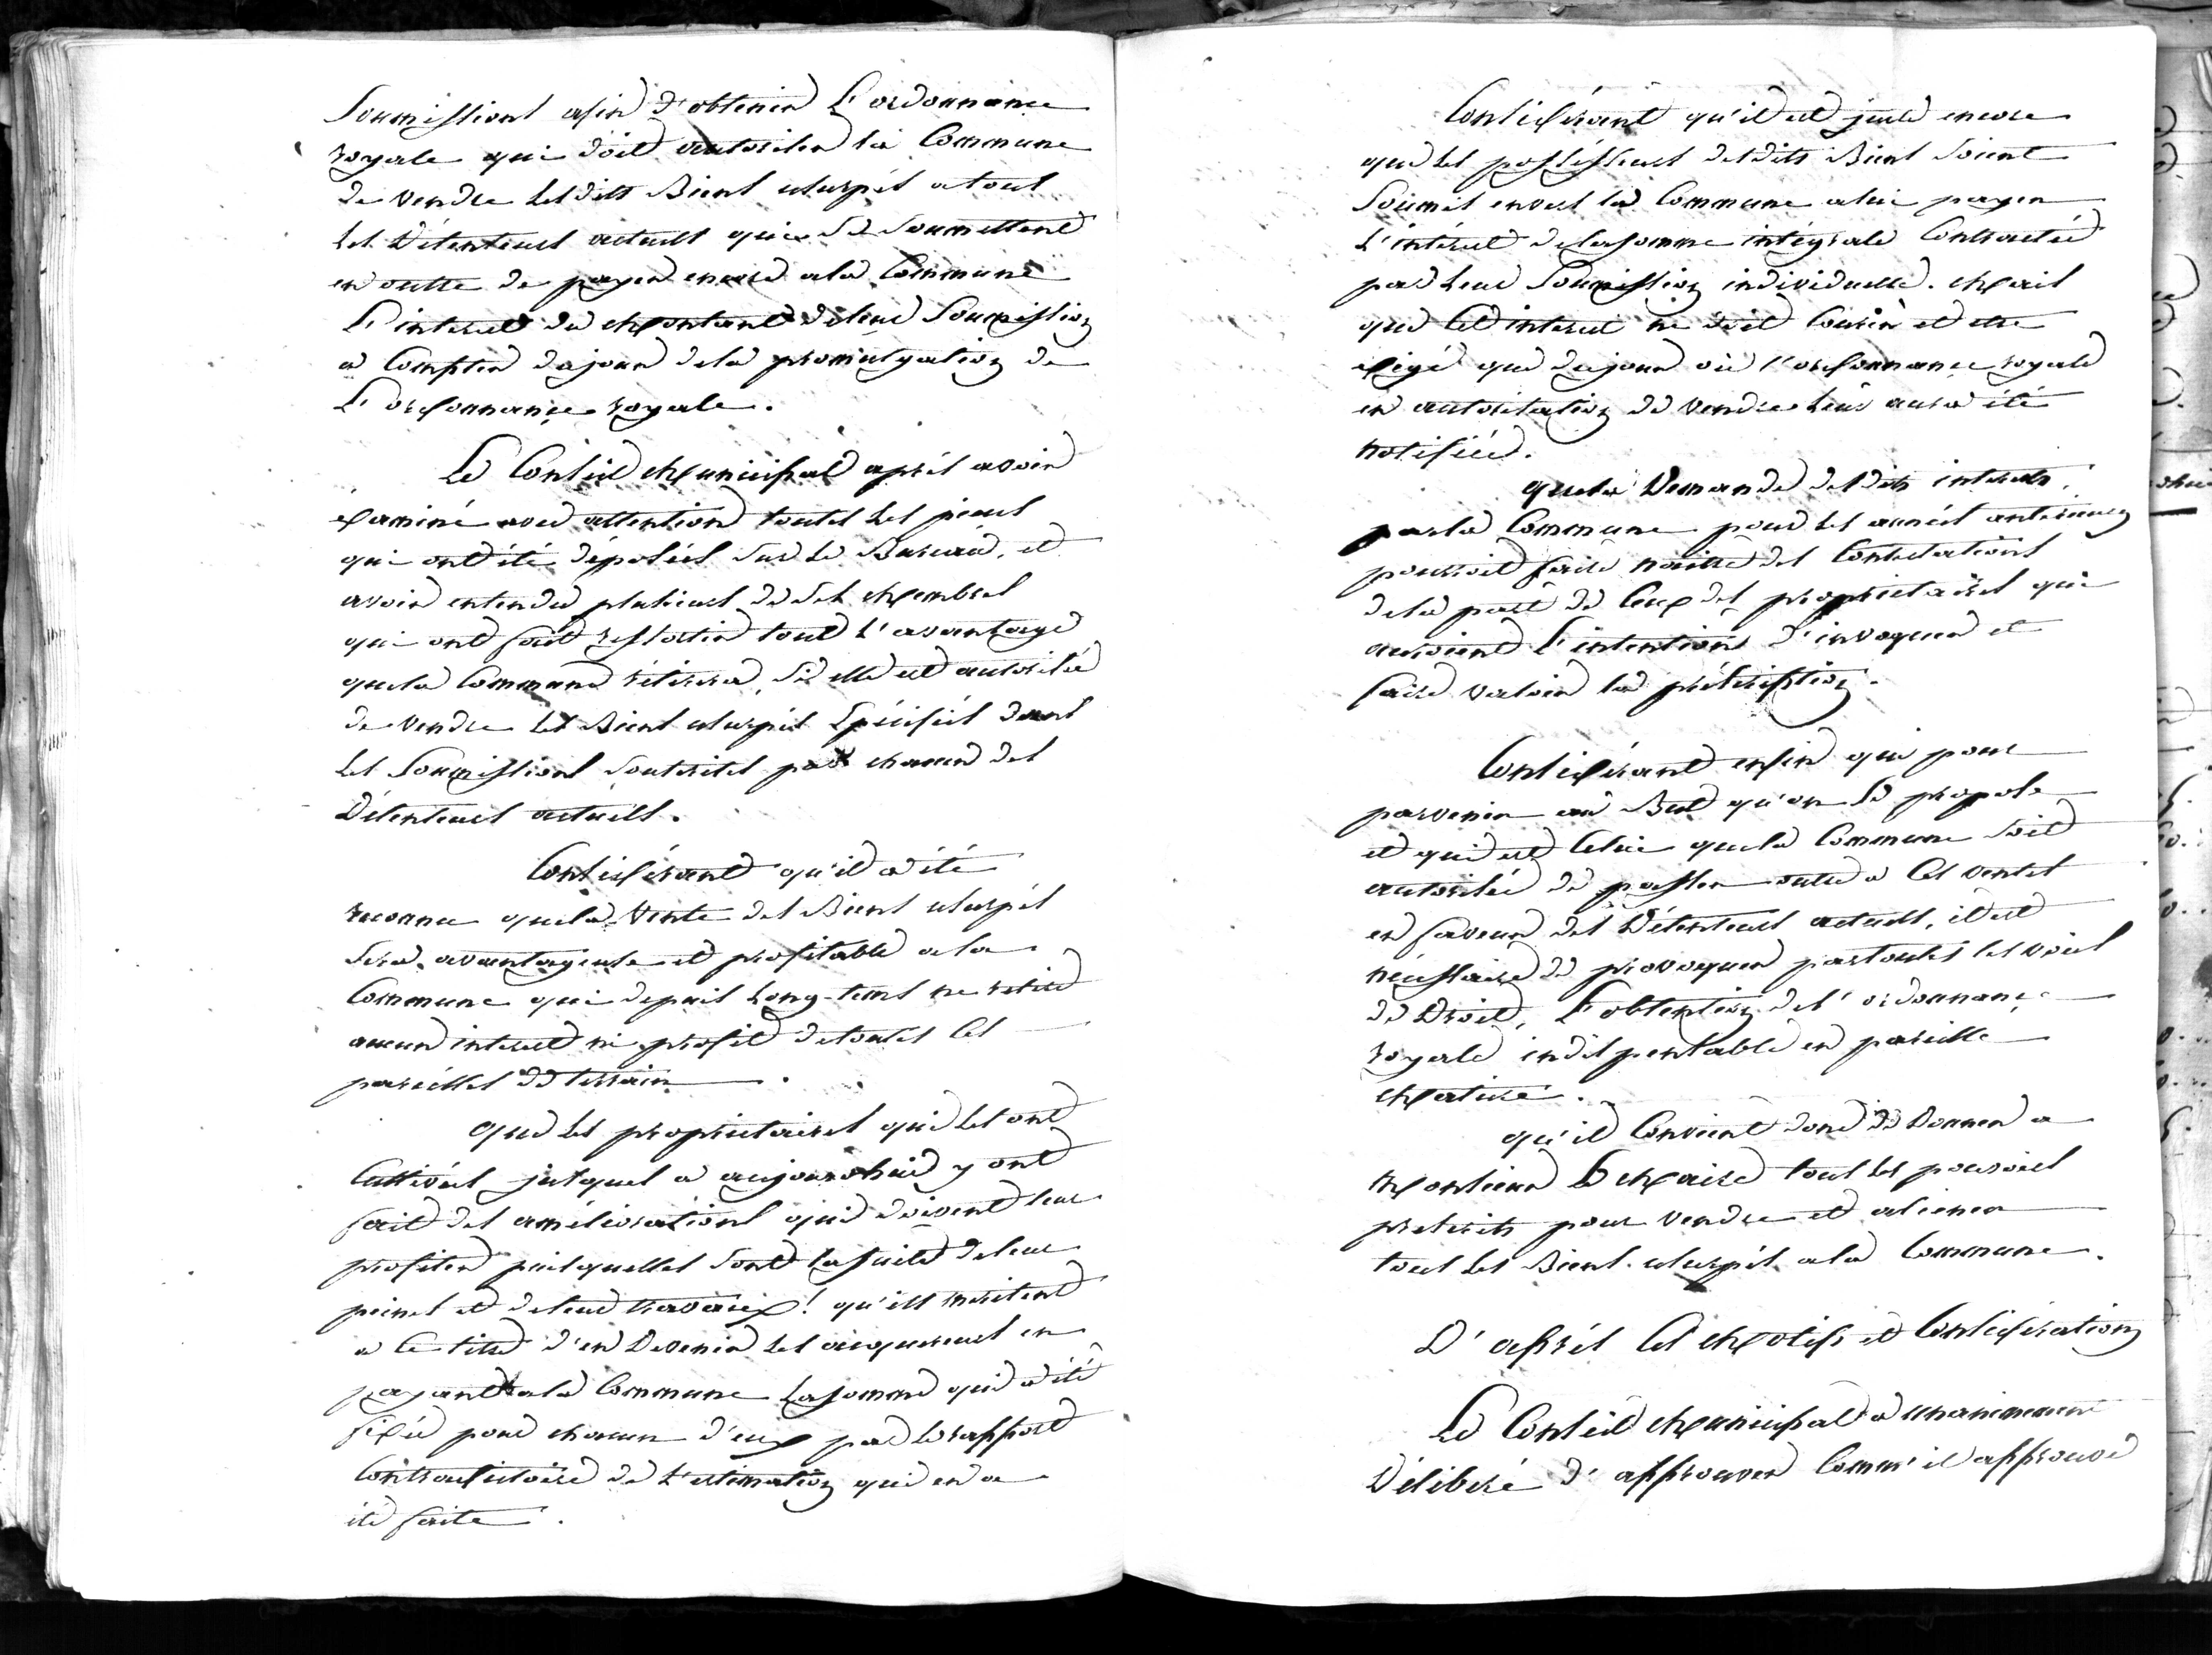 Soumissions afin d'obtenir L'ordonnance
royale qui doit autoriser la Commune
de vendre les dits Biens usurpés a tous
les Détenteurs actuels qui se soumettent
en outre de payer encore a la Commune
L'interret du Montant de leur Soumission
a Compter du jour de la promulgation de
L'ordonnance royale.
Le Conseil Municipal aprés avoir
éxaminé avec attention toutes les pieces
qui ont été déposées sur le Bureau, et
avoir entendu plusieurs de ses Membres
qui ont fait ressortir tout L'avantage
que la Commune rétirera, si elle est autorisée
de vendre les Biens usurpés spécifiés dans
les Soumissions souscrites par chacun des
Détenteurs actuels.
Considérant qu'il a été
reconnu que la Vente des Biens usurpés
sera avantageuse et profitable a la
Commune qui depuis Long-tems ne retire
aucun interret ni profit de toutes Ces
parcelles de terrain.
que les propriétaires qui les ont
Cultivées jusques a aujourdhuid y ont
fait des améliorations qui doivent leur
profiter puisquelles sont la suite de leur
peines et de leur travaux! qu'ils méritent
a Ce titre d'en Devenir les acquereurs en
payant a la Commune La somme qui a été
fixée pour chacun d'eux par le rapport
Contradictoire de L'estimation qui en a
été faite.
Considérant qu'il est juste encore
que les possesseurs des dits Biens soient
Soumis envers la Commune a lui payer
L'intéret de la somme intégrale Contractée
par leur Soumission individuelle. Mais
que Cet interret ne doit Courir et etre
exigé que du jour où l'ordonnance royale
en autorisation de vendre leur aura été
notifiée.
que la Demande des dits interrets
par la Commune pour les années anterieures
pourroit faire naitre des Contestations
de la part de Ceux des propriétaires qui
auroient L'intention d'invoquer et
faire valoir la préscription.
Considérant enfin que pour
parvenir au But qu'on se propose
et qui est Celui que la Commune soit
autorisée de passer outre a Ces ventes
en faveur des Détenteurs actuels, il est
nécessaire de provoquer par toutes les voies
de Droit, L'obtention de l'ordonnance
royale indispensable en pareille
Matiere.
qu'il Convient donc de Donner a
Monsieur Le Maire tous les pouvoirs
prescrits pour vendre et aliener
tous les Biens usurpés a la Commune.
D'après Ces Motifs et Considérations
Le Conseil Municipal a unanimement
Délibéré d'approuver Comm'il approuve